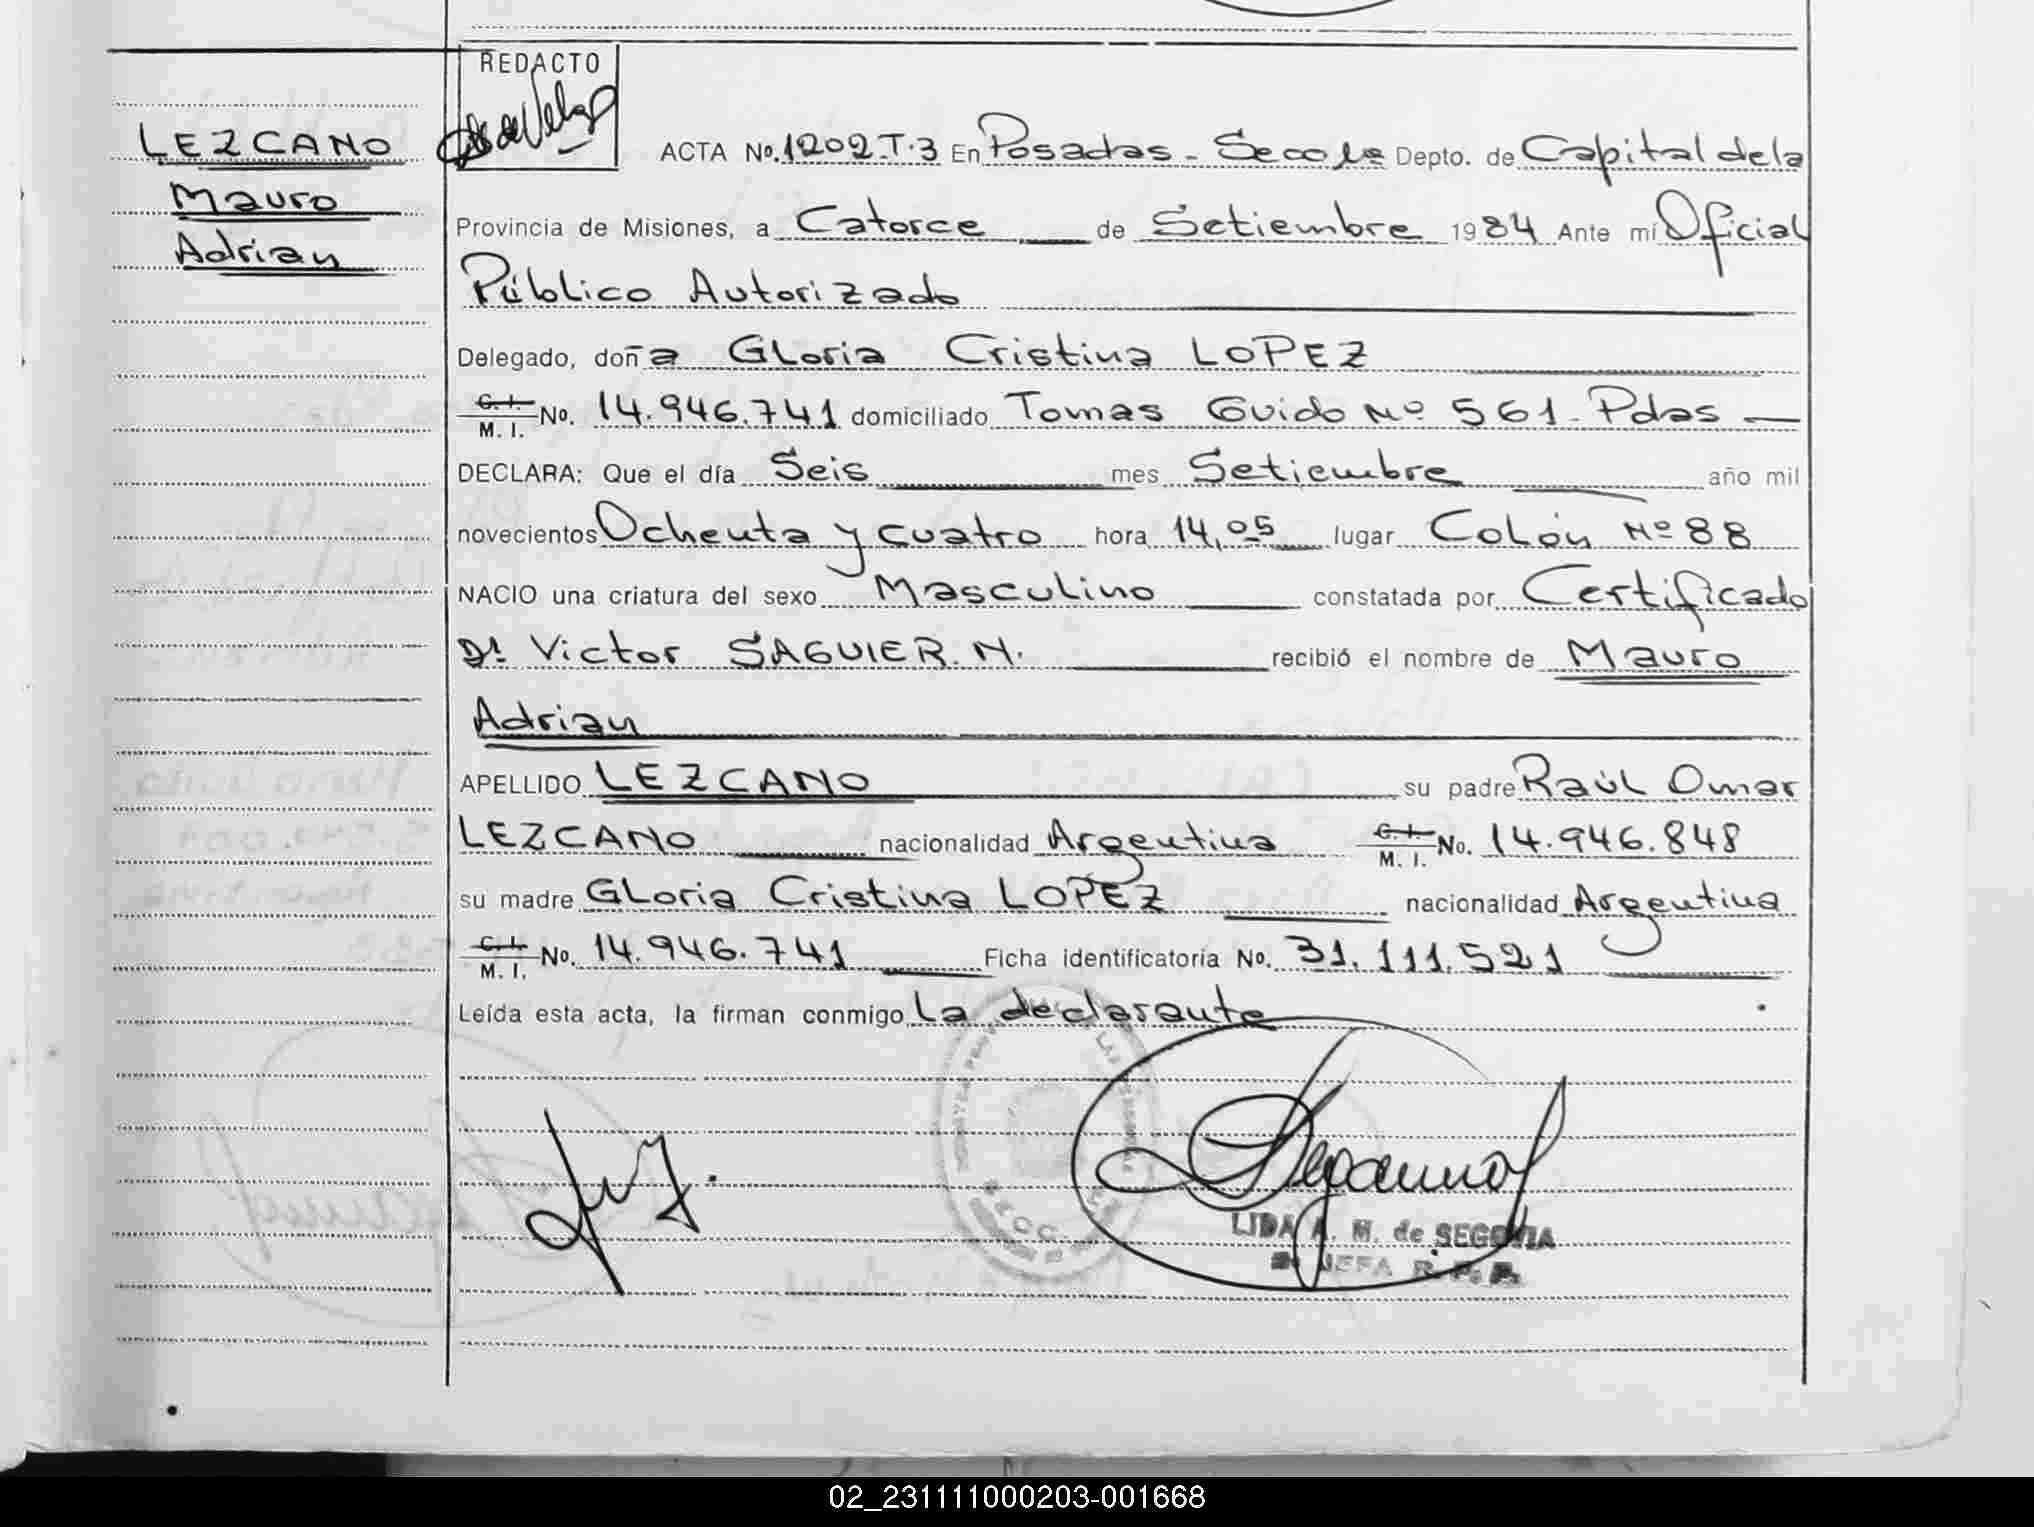 REDACTO
LEZCANO
Mauro
Adrian
ACTA No. 1202.T.3 En Posadas - Secc 1ra Depto. de Capital de la
Provincia de Misiones, a Catorce de Setiembre 1984 Ante mí Oficial
Público Autorizado
Delegado, doña GLoria Cristina LOPEZ
C. I. M. I. No. 14.946.741 domiciliado Tomas Guido No 561 - Pdas
DECLARA: Que el día Seis mes Setiembre año mil
novecientos Ochenta y cuatro hora 14,05 lugar Colón No 88
NACIO una criatura del sexo Masculino constatada por Certificado
Dr. Victor SAGUIER. N. recibió el nombre de Mauro
Adrian
APELLIDO LEZCANO su padre Raúl Omar
LEZCANO nacionalidad Argentina C. I. M. I. No. 14.946.848
su madre GLoria Cristina LOPEZ nacionalidad Argentina
C. I. M. I. No. 14.946.741 Ficha identificatoria No. 31.111.521
Leída esta acta, la firman conmigo La declarante
LIDA A. M. de SEGOVIA
JEFA R. P. P.
02_231111000203-001668